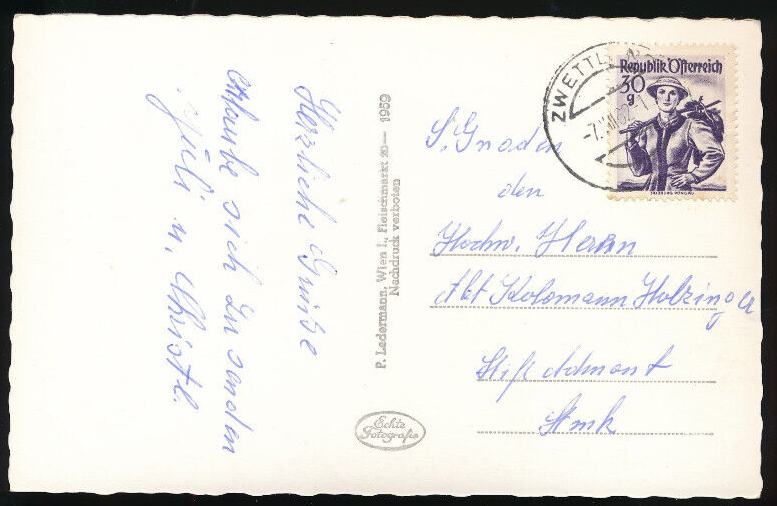 Herzliche Grüße
erlaube sich zu senden
Juli u. Christl.
P. Ledermann, Wien I., Fleischmarkt 20 — 1959
Nachdruck verboten
Echte
Fotografie
ZWETTL
-7.
Republik Österreich
30
g
SALZBURG PONGAU
S. Gnaden
den
Hochw. Herrn
Abt Kolomann Holzinger
Stift Admont
Stmk